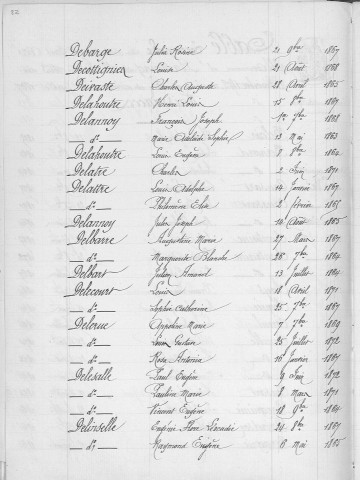 Debarge Julie Rosine 21 9bre 1867
Decottignies Louise 21 Août 1868
Devaste Charles Auguste 28 Avril 1865
Delahoutre Henri Louis 15 1867
Delannoy François Joseph 1er 1868
d° Marie Adélaïde Sophie 13 Mai 1863
Delahoutre Louis Eugène 8
Delatre Charles 2 Juin 1871
Delattre Louis Adolphe 14 Janvier 1867
d° Philomène Elise 2 février 1865
Delannoy Jules Joseph 14 Août 1865
Delbarre Augustine Marie 27 Mars 1867
d° Marguerite Blanche 28 7bre 1864
Delbart Jules Amand 13 Juillet 1864
Delecourt Louis 18 Avril 1871
d° Sophie Catherine 25 7bre 1867
Delerue Appoline Marie 7 7bre 1869
d° Louis Gustave 25 Juillet 1872
d° Rosa Antonia 10 Janvier 1867
Delesalle Paul Eugène 9 Juin 1872
d° Pauline Marie 8 Mars 1871
d° Vincent Eugène 18 9bre 1864
Delinselle Eugène Flore 24 8bre 1867
d° Raymond Eugène 6 Mai 1865